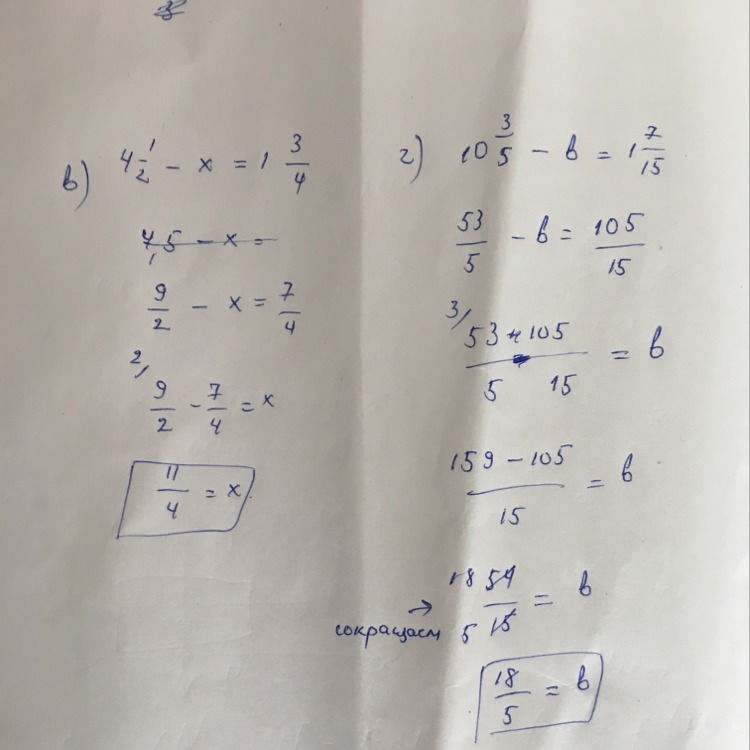 в) 4 1/2 − x = 1 3/4
4,5 − x =
9/2 − x = 7/4
2/ 9/2 − 7/4 = x
11/4 = x
г) 10 3/5 − в = 1 7/15
53/5 − в = 105/15
3/ 53/5 − 105/15 = в
159 − 105 / 15 = в
сокращаем → 18 54 / 5 15 = в
18/5 = в